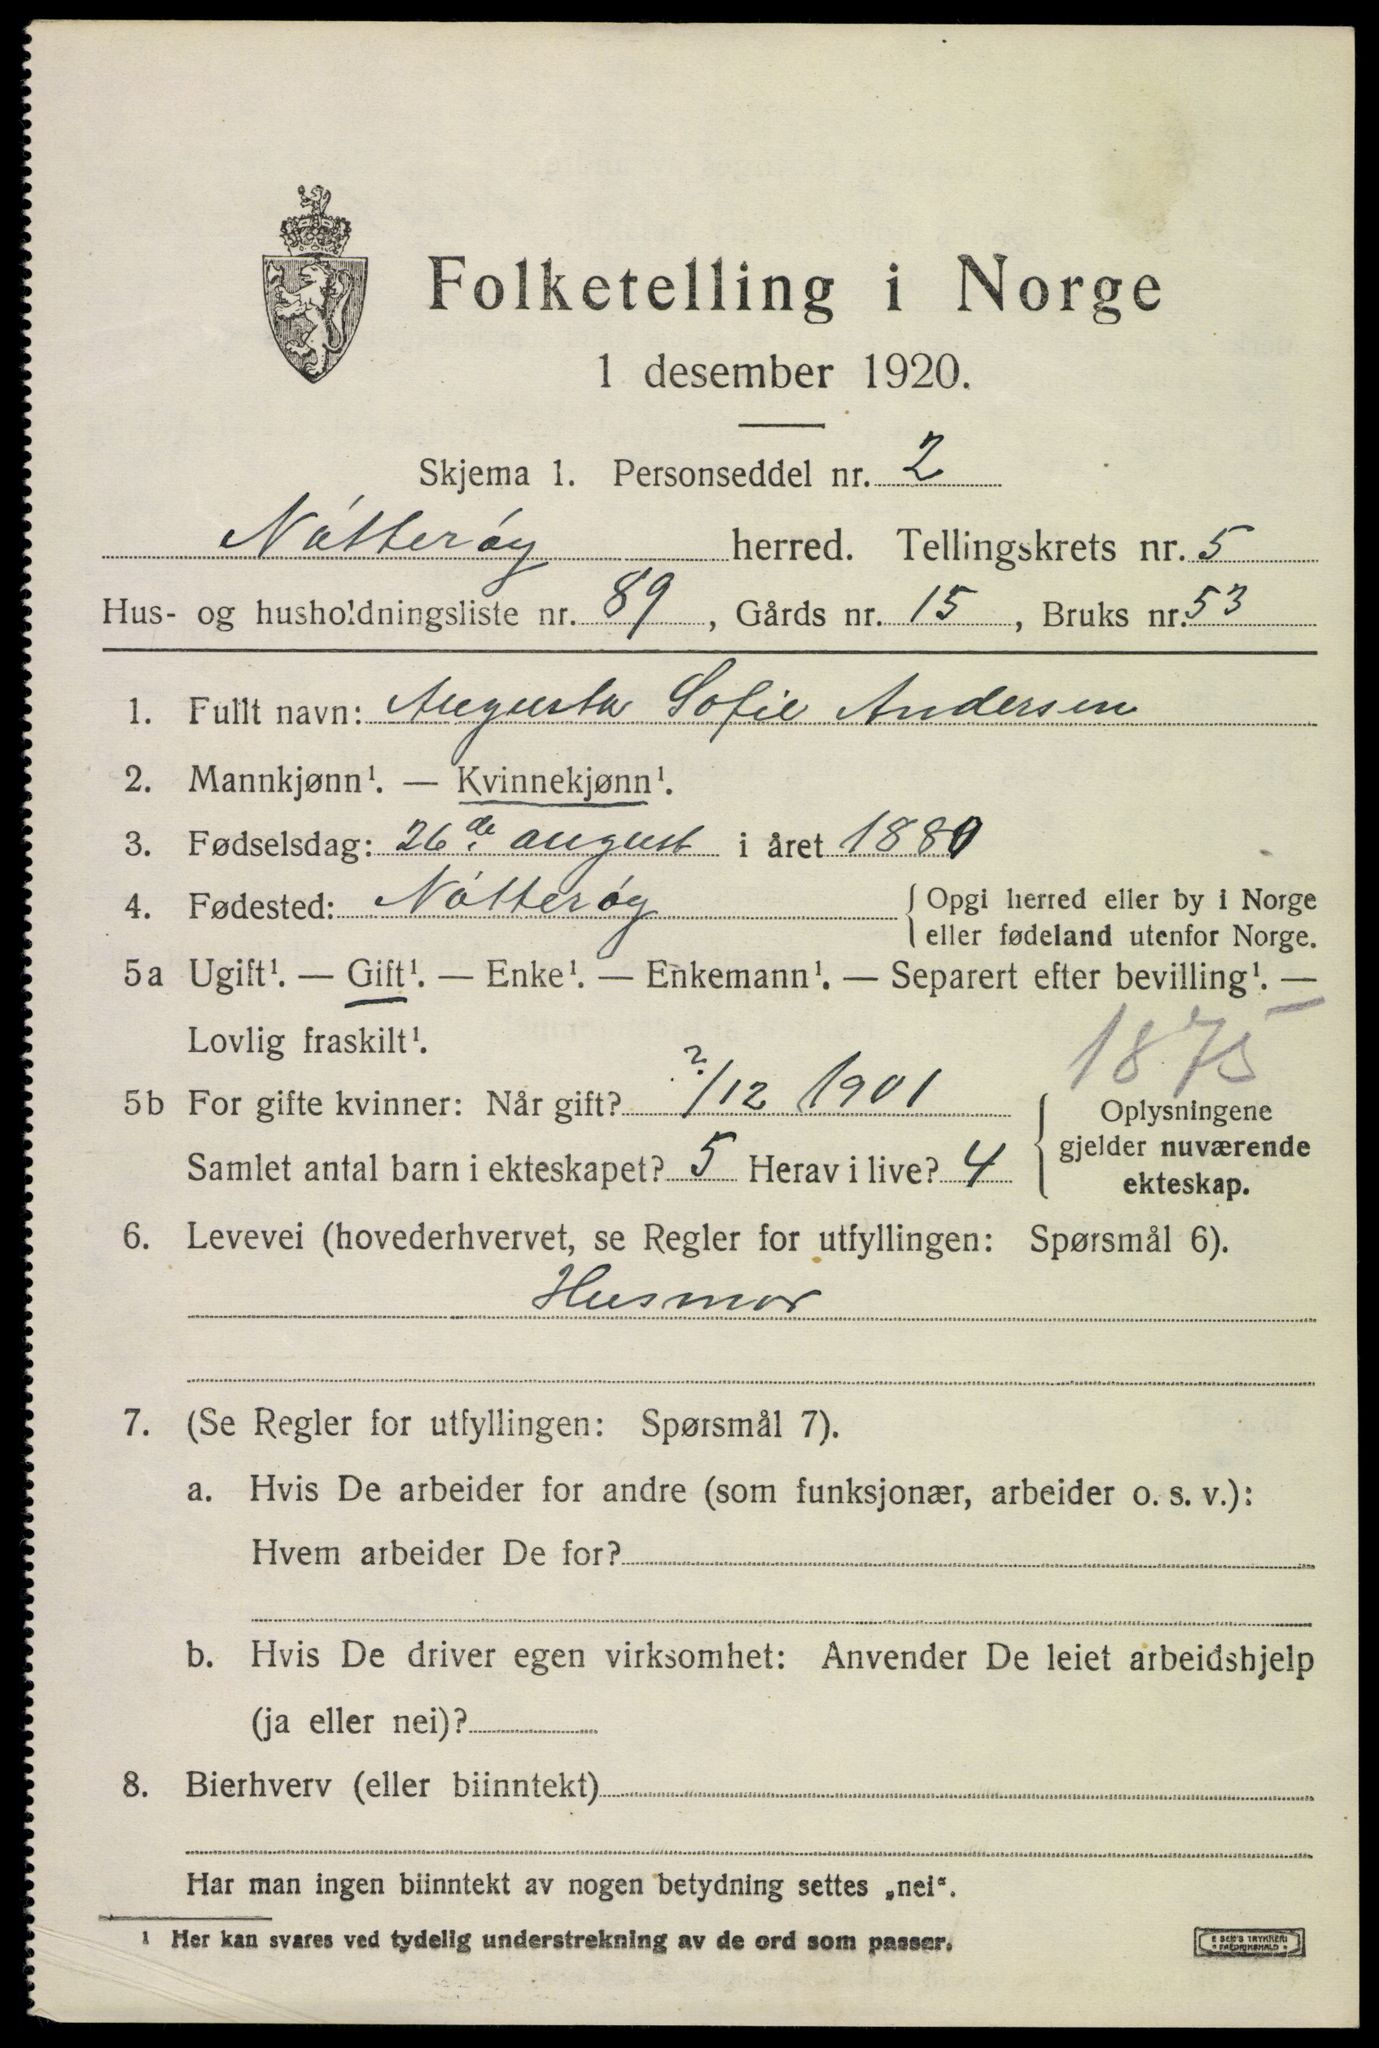 Folketelling i Norge
1 desember 1920.
Skjema 1. Personseddel nr. 2
Nøtterøy herred. Tellingskrets nr. 5
Hus- og husholdningsliste nr. 89, Gårds nr. 15, Bruks nr. 53
1. Fullt navn: Augusta Sofie Andersen
2. Mannkjønn¹. — Kvinnekjønn¹.
3. Fødselsdag: 26de august i året 1880
4. Fødested: Nøtterøy { Opgi herred eller by i Norge
eller fødeland utenfor Norge.
5a Ugift¹. — Gift¹. — Enke¹. — Enkemann¹. — Separert efter bevilling¹. —
Lovlig fraskilt¹.
1875
5b For gifte kvinner: Når gift? ?/12 1901
Samlet antal barn i ekteskapet? 5 Herav i live? 4
{ Oplysningene
gjelder nuværende
ekteskap.
6. Levevei (hovederhvervet, se Regler for utfyllingen: Spørsmål 6).
Husmor
7. (Se Regler for utfyllingen: Spørsmål 7).
a. Hvis De arbeider for andre (som funksjonær, arbeider o. s. v.):
Hvem arbeider De for?
b. Hvis De driver egen virksomhet: Anvender De leiet arbeidshjelp
(ja eller nei)?
8. Bierhverv (eller biinntekt)
Har man ingen biinntekt av nogen betydning settes „nei“.
¹ Her kan svares ved tydelig understrekning av de ord som passer.
E SEM'S TRYKKERI
FREDRIKSHALD